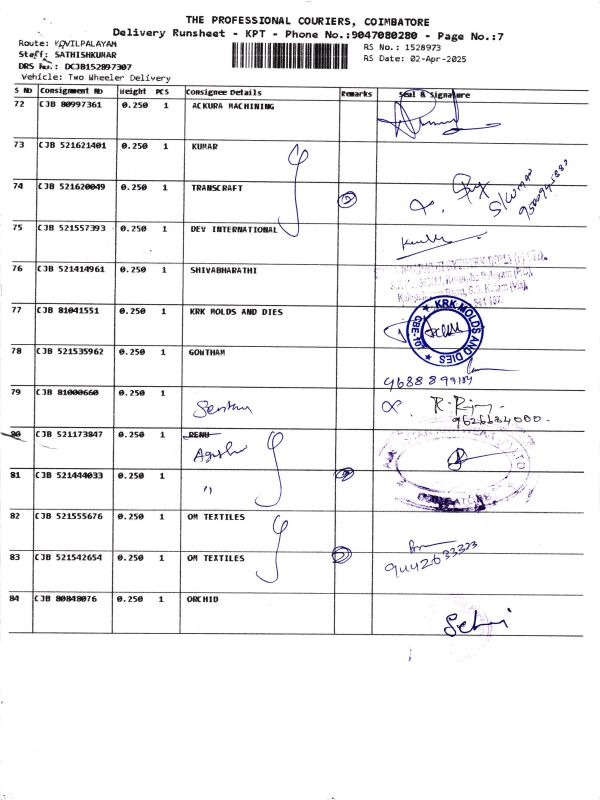 THE PROFESSIONAL COURIERS, COIMBATORE
Delivery Runsheet - KPT - Phone No.:9047080280 - Page No.:7
Route: KOVILPALAYAM
Staff: SATHISHKUMAR
DRS No.: DCJB152897307
Vehicle: Two Wheeler Delivery
RS No.: 1528973
RS Date: 02-Apr-2025
S No Consignment No Weight PCS Consignee Details Remarks Seal & Signature
72 CJB 80997361 0.250 1 ACKURA MACHINING
73 CJB 521621401 0.250 1 KUMAR
74 CJB 521620049 0.250 1 TRANSCRAFT 2
75 CJB 521557393 0.250 1 DEV INTERNATIONAL
76 CJB 521414961 0.250 1 SHIVABHARATHI
77 CJB 81041551 0.250 1 KRK MOLDS AND DIES
KRK MOLDS AND DIES
78 CJB 521535962 0.250 1 GOWTHAM
79 CJB 81000660 0.250 1
9626684000
80 CJB 521173847 0.250 1 RENU
81 CJB 521444033 0.250 1 "
COIMBATORE
82 CJB 521555676 0.250 1 OM TEXTILES
83 CJB 521542654 0.250 1 OM TEXTILES
9442633333
84 CJB 80848076 0.250 1 ORCHID